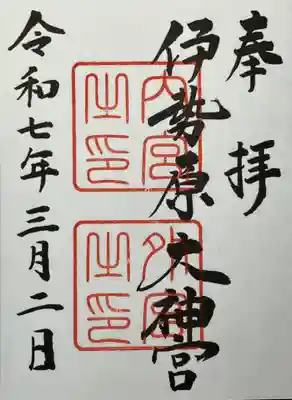 奉拝
伊勢原大神宮
内宮之印
外宮之印
令和七年三月二日